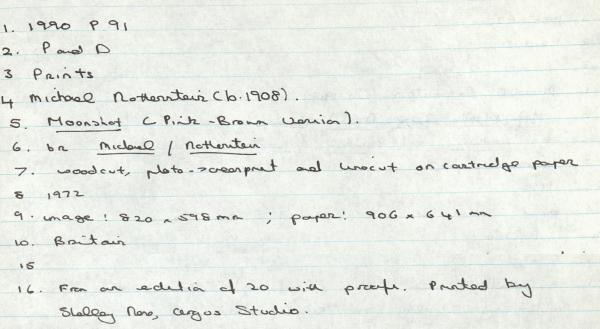 1. 1990 P 91
2. P and D
3 Prints
4 Michael Rothenstein (b.1908).
5. Moonshot (Pink-Brown Version).
6. br Michael / Rothenstein
7. woodcut, photo-screenprint and linocut on cartridge paper
8 1972
9. image: 820 x 598 mm ; paper: 906 x 641 mm
10. Britain
15
16. From an edition of 20 with proofs. Printed by
Shelley Rose, Argos Studio.